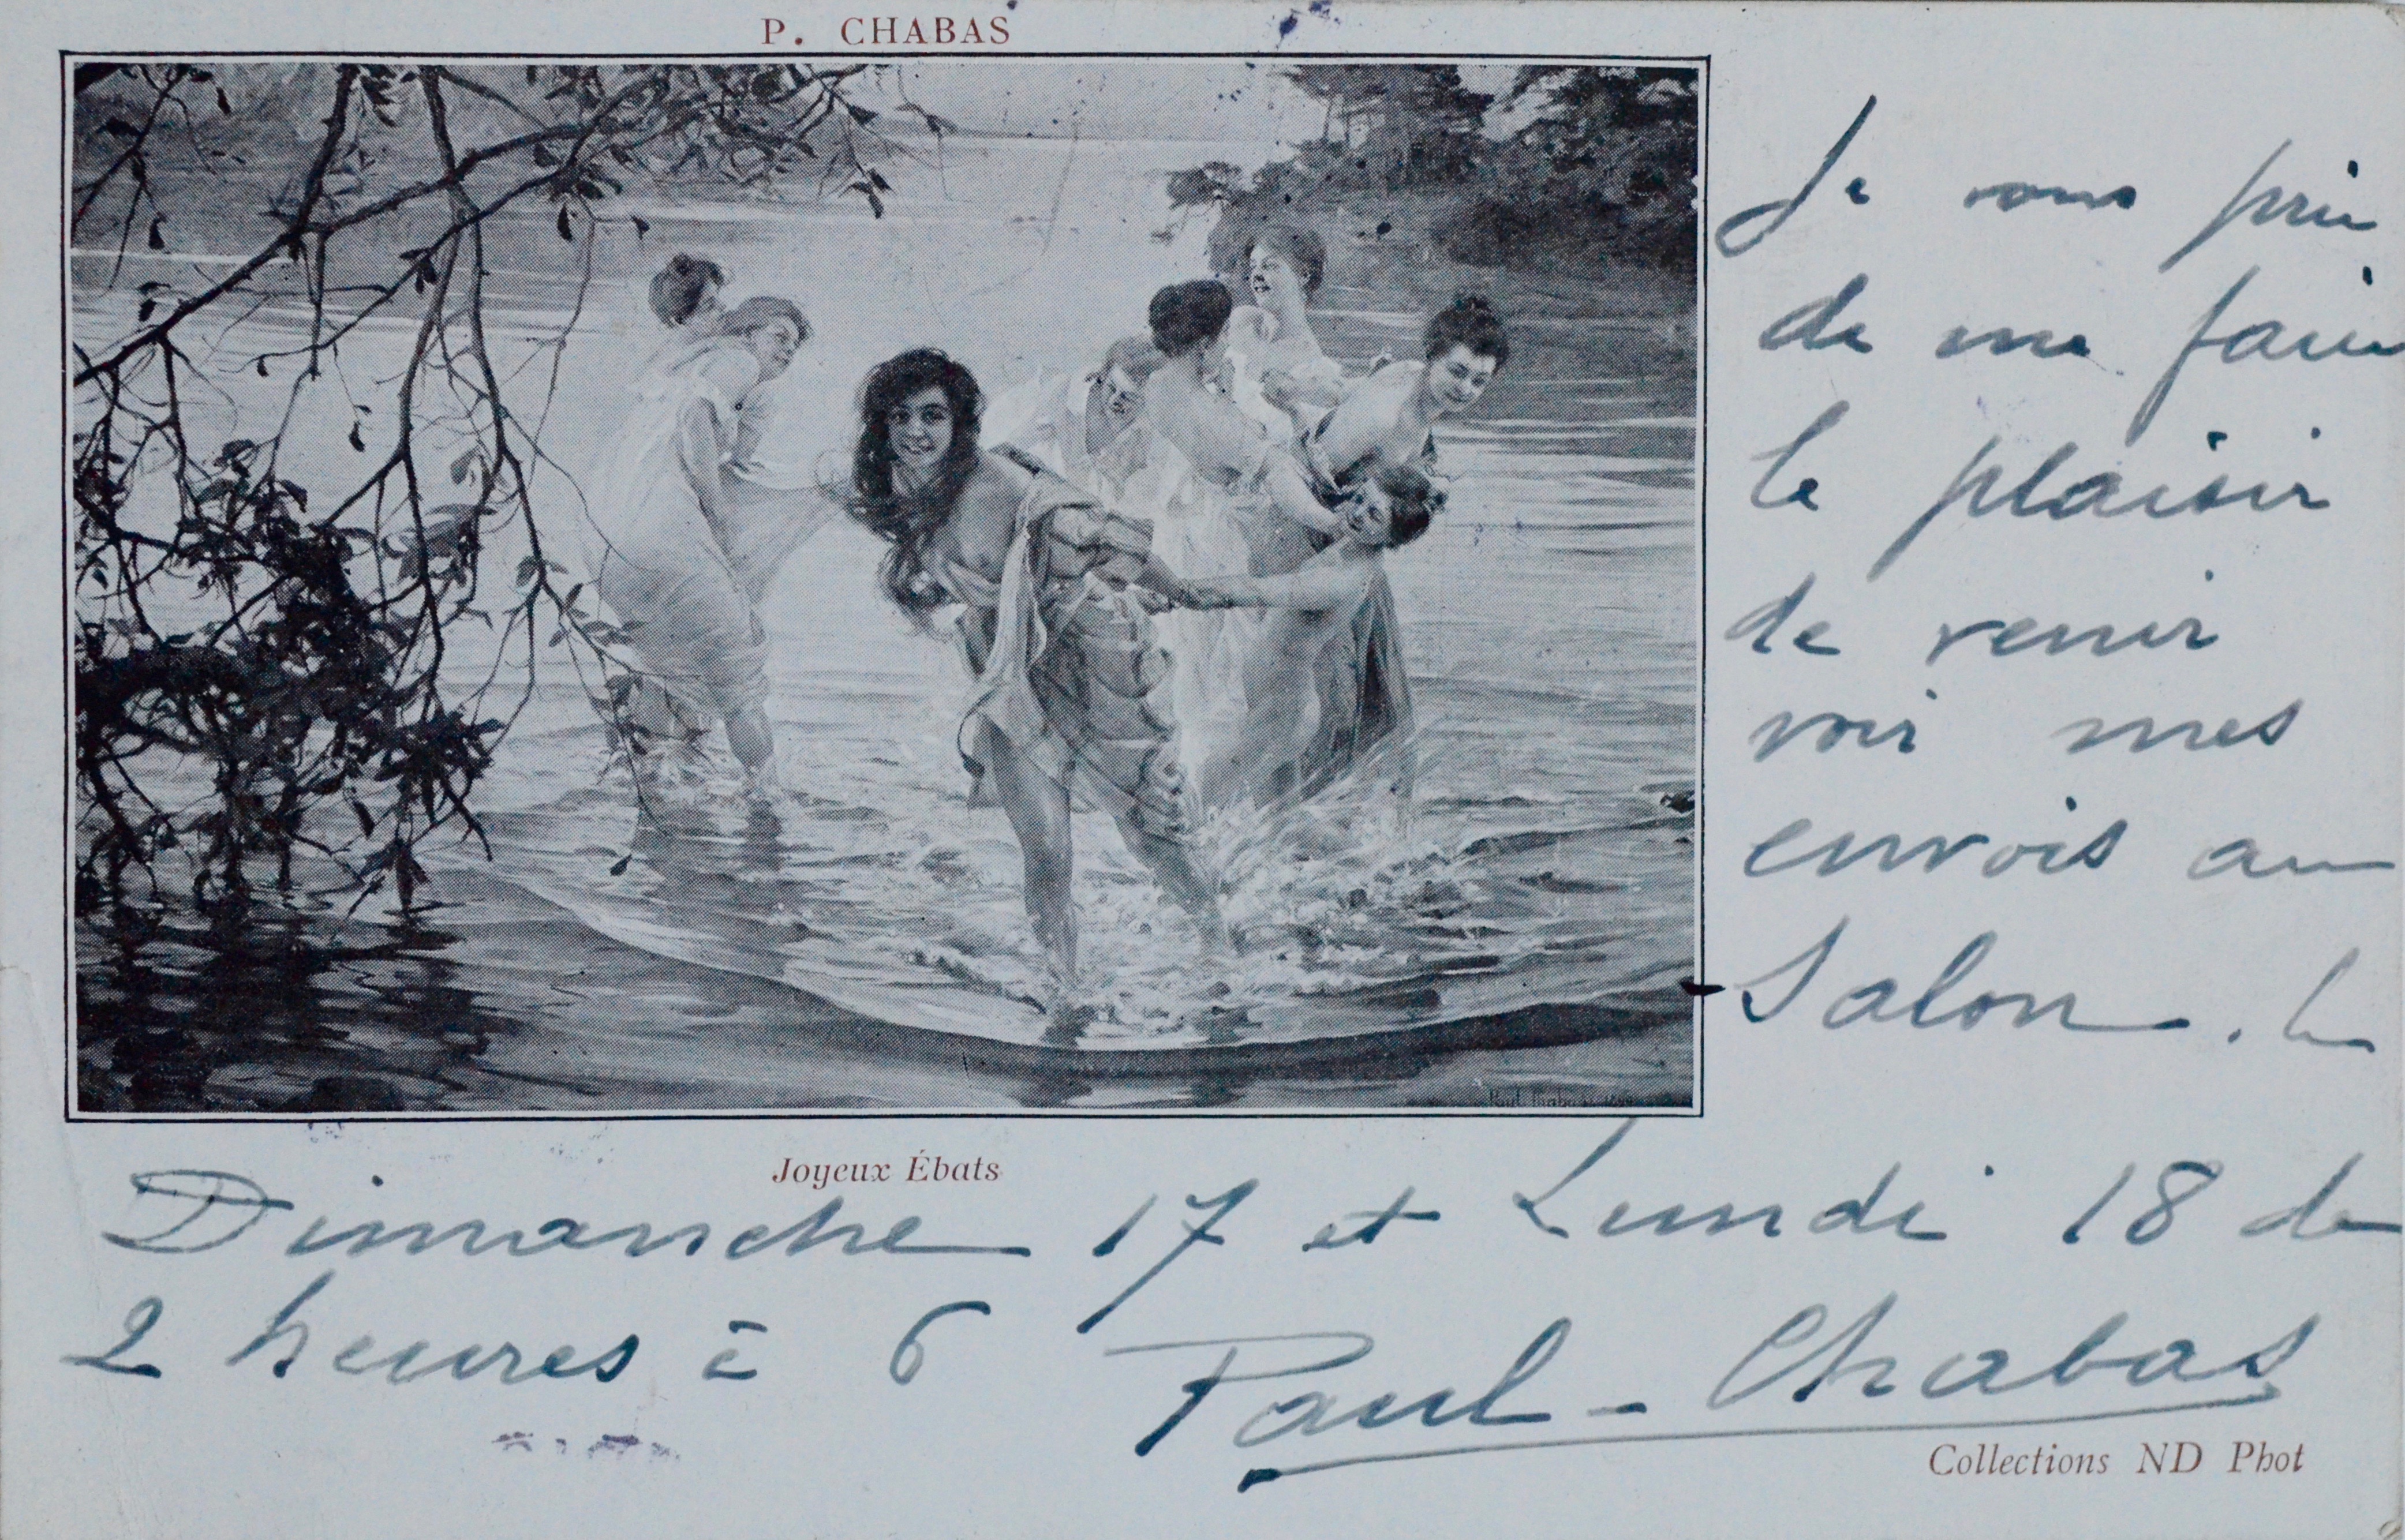 P. CHABAS
Je vous prie
de me faire
le plaisir
de venir
voir mes
envois au
Salon. le
Joyeux Ébats
Dimanche 17 et Lundi 18 de
2 heures à 6 Paul-Chabas
Collections ND Phot